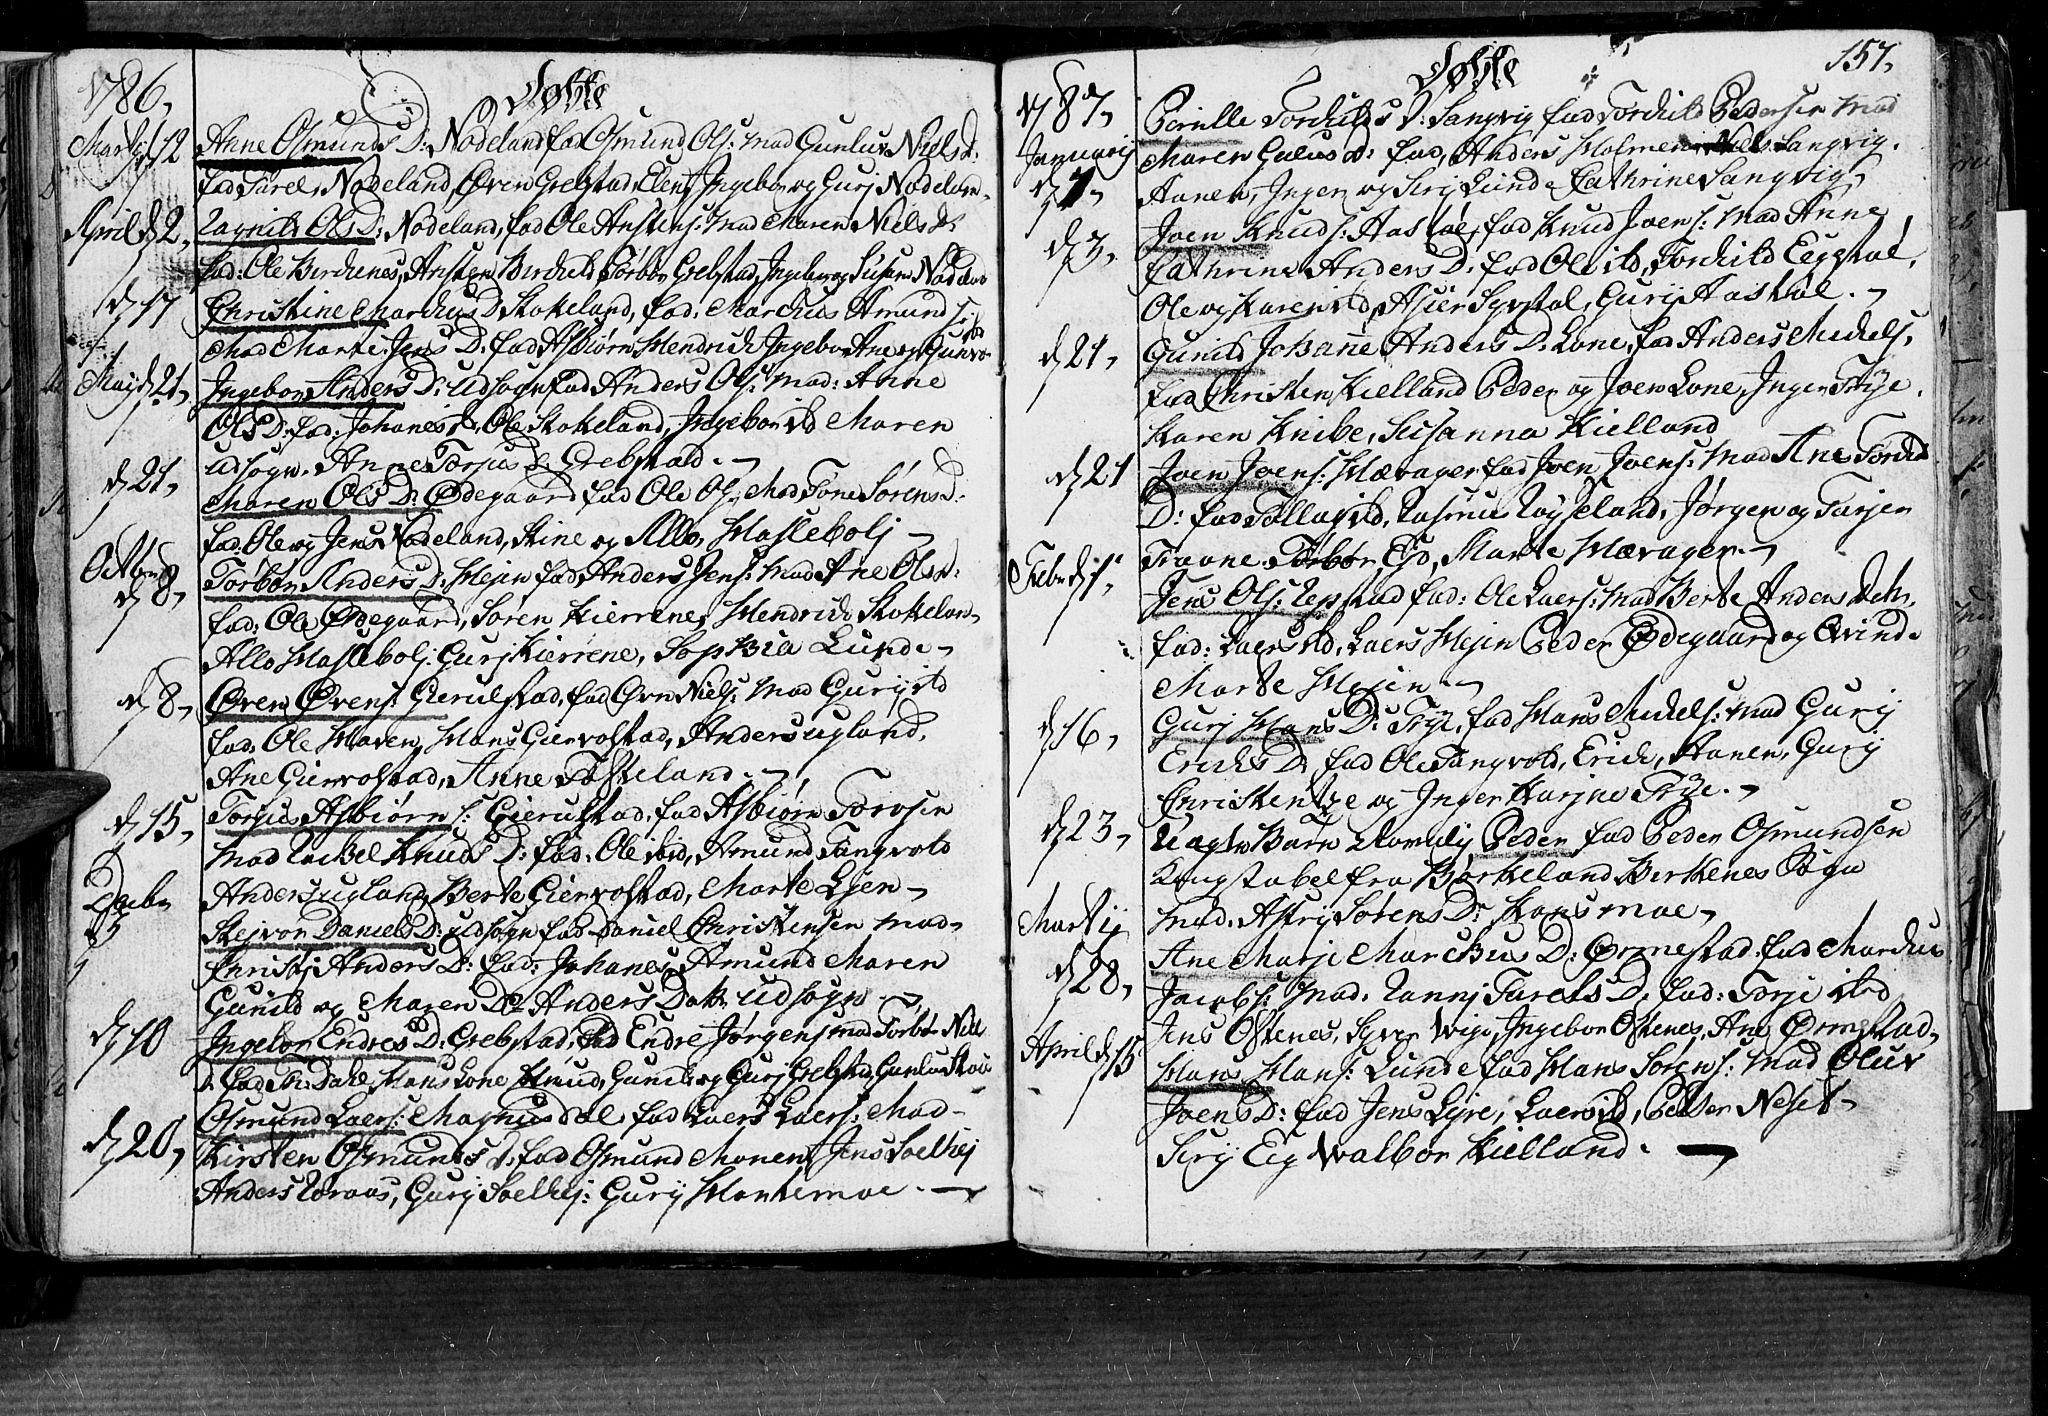 1786,
Døbte
Martij d 12
Anne Osmunds D: Nodeland fad Osmund Ols: Mad Gunlur Niels D:
fad Tarel, Nodeland, Øven Grebstad, Elen, Ingebor og Gurj Nodeland
April d 2,
Ragnild Ols D: Nodeland, fad Ole Anstens: Mad Maren Niels D:
fad: Ole Berchenes, Ansten Torbør Grebstad, Ingebor og Susan Nodeland
d 17
Christine Marchus D: Stokeland, fad: Marchus Amund S:
Mad Marte Jens D: fad Asbiørn, Hendrich Ingebor Ane og Gunvor
Maij d 21,
Ingebor Anders D: Udsogn fad Anders Ols: Mad: Anne
Ols D: fad: Johanes ibd, Ole Stokeland, Ingebor ibd Maren
Udsogn. Anne Torjus D: Grebstad.
d 21,
Maren Ols D: Ødegaard fad Ole Ols: Mad Tone Sørens D:
fad. Ole og Jens Nodeland, Stine og Allo, Haslebolj
Octbr d 8,
Torbør Anders D: Hejen fad Anders Jens: Mad Ane Ols D:
fad: Ole Ødegaard, Søren Kierrene, Hendrich Stokelan
Allo Haslebolj. Gurj Kierrene, Sophia Lunde
d 8,
Øven Øvens: Gierulstad, fad Øvn Niels: Mad Gurj ibd
fad, Ole Haven, Hans Giervolstad, Anders ugland,
Ane Giervolstad, Anne Tosteland.
d 15,
Torjus Asbiørns: Gierulstad, fad Asbiørn Torosen
Mad Rachel Knuds D: fad: Ole ibd, Amund Tangvold
Anders ugland, Berte Giervolstad, Marte Lien
Decbr d 3
Skejvor Daniels D: Udsogn fad Daniel Christensen Mad
Christj Anders D: fad: Johanes, Amund Maren
Gunild og Maren D: Anders Dotr. Udsogn
d 10
Ingebor Endres D: Grebstad, fad Endre Jørgens mad Torbør Niels
D: fad Tho Dahl Hans Lone Gunild og Gurj Grebstad, Gunlur
d 20,
Osmund Laers: Magnusdal fad Laers Laers: Mad
Kirsten Osmunds D: fad Osmund Monen, Jens Soelhej
Anders Roraas, Gurj Soelhej: Gurij Hantemoe.
157,
1787,
Døbte
Januarij d 1,
Pernille Torchilds D: Sangvig fad Torchild Pedersen Mad
Maren Guus D: fad, Anders Holmen, Niels Sangvig.
Aanen, Inger og Sirj Lunde Cathrine Sangvig,
d 3,
Joen Knuds: Aastøl, fad Knud Joens: Mad Anne
Cathrine Anders D: fad Ole ibd, Torchild Eegstøl,
Ole og Karen ibd, Asier Syvstøl, Gurij Aastøl.
d 21,
Gunild Johanne Anders D: Lone, fad Anders Michels,
fad Christen Kielland Peder og Joen Lone, Inger Trye
Karen Knibe, Susanna Kielland
d 21
Joen Joens: Hævager fad Joen Joens: Mad Ane Torchild
D: fad Tallag ibd, Rasmus Røyseland, Jørgen og Tarjer
Traane. Torbør, Ejd, Marte Hævager.
Febr d 1,
Jens Ols: Repstad fad: Ole Laers: Mad Berte Anders Dotr.
fad: Laers ibd, Laers Hejen Peder Ødegaard og Øvind
Marte Hejen
d 16,
Gurj Hans D: Trye, fad Hans Michels: Mad Gurij
Erichs D: fad Ole Tangvold, Erich, Aanen, Gurij
Christentze og Inger Karine Trye.
d 23,
Uægte Barn Navnlig Peder fad Peder Osmundsen
Kongstabel fra Børkeland Berkenes Sogn
Mad. Astrij Sørens D: Hansmoe
Martij d 28,
Ane Marje Marchus D: Ormestad. fad Marchus
Jacobs: Mad, Rannj Tarels D: fad: Torje ibd,
Jens Ostenes, Syver Wige, Ingebor Ostenes, Ane Ormestad,
April d 15
Hans Hans: Lunde fad Hans Sørens: Mad Oluv
Joens D: fad Jens Eyre, Laers ibd, Petter Neset
Sirij Eeg Walbor Kielland.